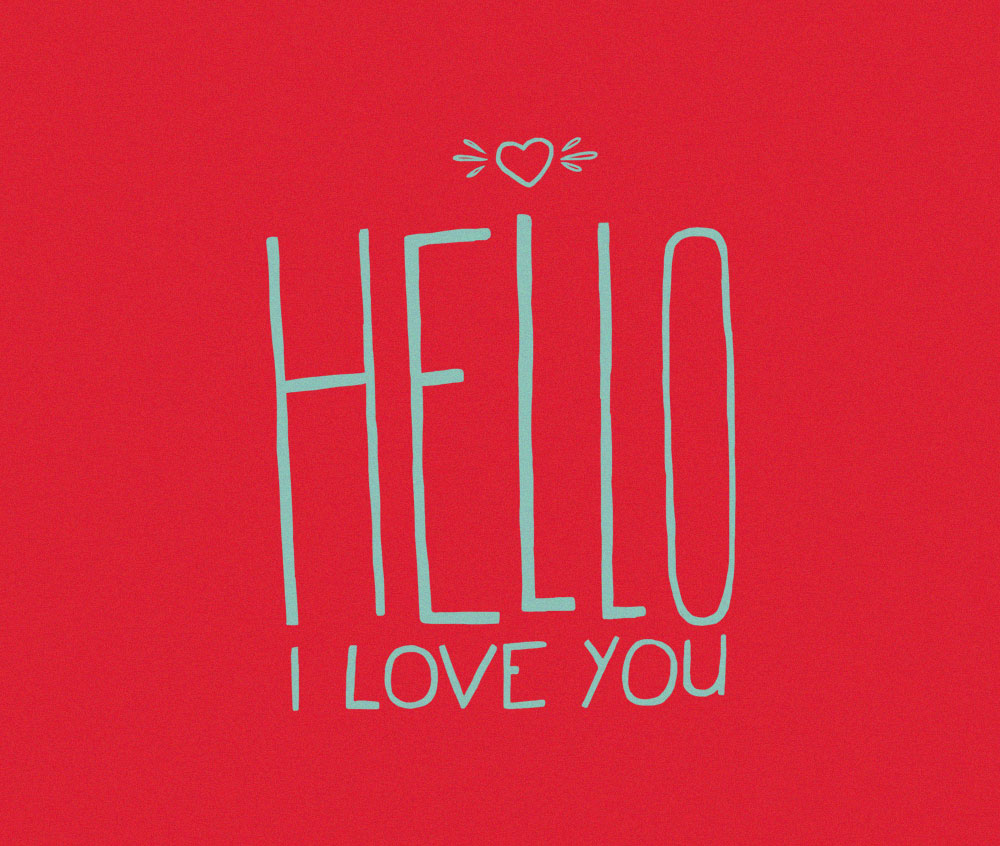 HELLO
I LOVE YOU